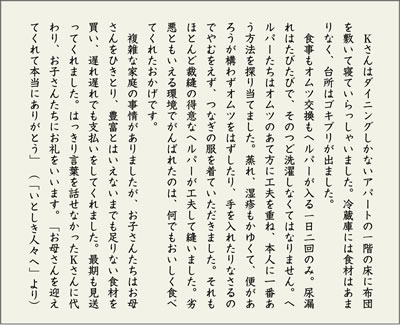 Kさんはダイニングしかないアパートの一階の床に布団
を敷いて寝ていらっしゃいました。冷蔵庫には食材はあま
りなく、台所はゴキブリが出ました。
　食事もオムツ交換もヘルパーが入る一日二回のみ。尿漏
れはたびたびで、そのつど洗濯しなくてはなりません。ヘ
ルパーたちはオムツのあて方に工夫を重ね、本人に一番あ
う方法を探り当てました。蒸れ、湿疹もかゆくて、便があ
ろうが構わずオムツをはずしたり、手を入れたりなさるの
でやむをえず、つなぎの服を着ていただきました。それも
ほとんど裁縫の得意なヘルパーが工夫して縫いました。劣
悪ともいえる環境でがんばれたのは、何でもおいしく食べ
てくれたおかげです。
　複雑な家庭の事情がありましたが、お子さんたちはお母
さんをひきとり、豊富とはいえないまでも足りない食材を
買い、遅れ遅れでも支払いをしてくれました。最期も見送
ってくれました。はっきり言葉を話せなかったKさんに代
わり、お子さんたちにお礼をいいます。「お母さんを迎え
てくれて本当にありがとう」（「いとしき人々へ」より）